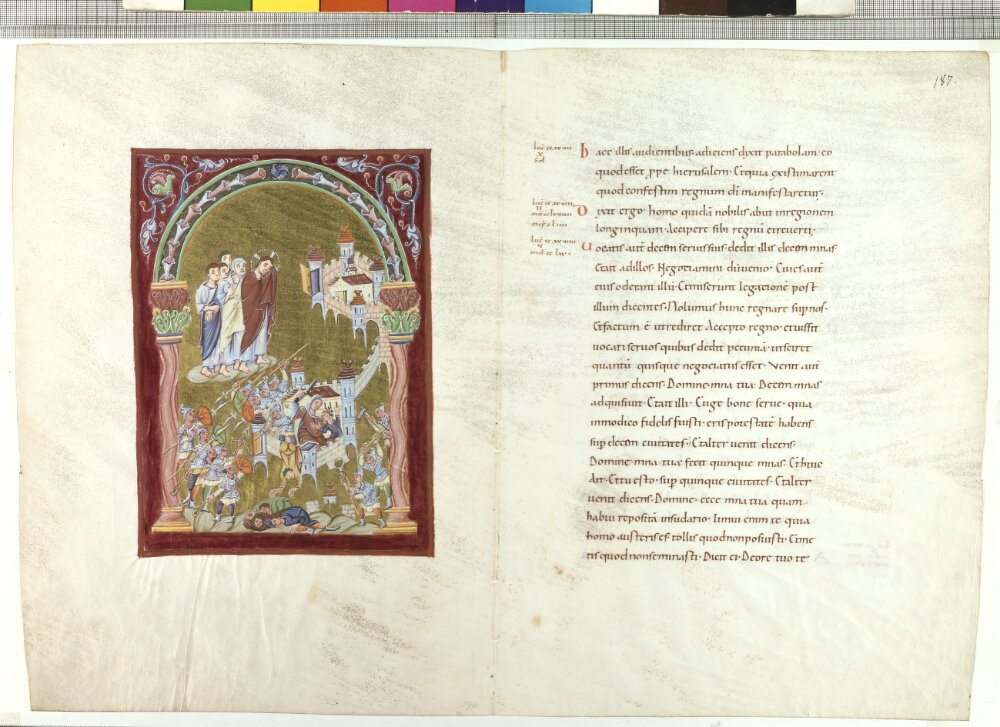 187.
Haec illis audientibus adiciens dixit parabolam eo
quod esset ppe hierusalem. Et quia existimarent
quod confestim regnum dī manifestaretur.
Dixit ergo. homo quidā nobilis abiit in regionem
longinquam. Accipere sibi regnū et reuerti.
Uocatis aut̄ decem seruis suis. dedit illis decem mnas
Et ait ad illos. Negotiamini dū uenio. Ciues aut̄
eius oderant illū. Et miserunt legationē post
illum dicentes. Nolumus hunc regnare sup nos.
Et factum ē ut rediret Accepto regno. et iussit
uocari seruos quibus dedit pecuniā. ut sciret
quantū quisque negociatus esset. Venit aut̄
primus dicens. Domine mna tua Decem mnas
adquisiuit. Et ait illi. Euge bone serue. quia
in modico fidelis fuisti. eris potestatē habens
sup decem ciuitates. Et alter uenit dicens.
Domine mna tua fecit quinque mnas. Et huic
Ait. Et tu esto. sup quinque ciuitates. Et alter
uenit dicens. Domine. ecce mna tua quam
habui repositā in sudario. Timui enim te quia
homo austeris es. tollis quod non posuisti. Et me
tis quod non seminasti. Dicit ei. De ore tuo te